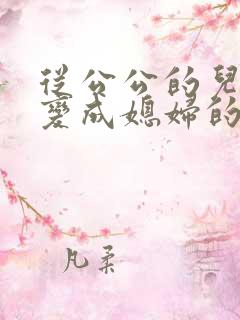 從公公的兒
變成媳婦的
凡柔